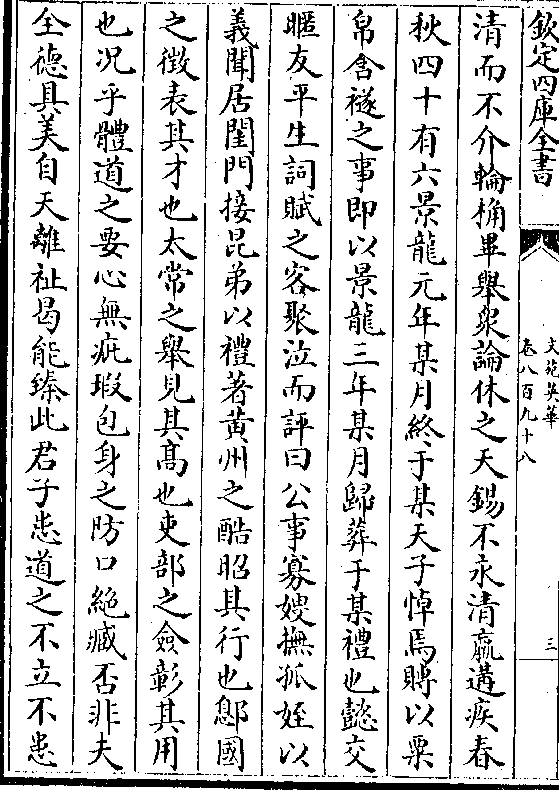 欽定四庫全書
文苑英華
卷八百九十八
三
清而不介輪桷畢舉衆論休之天錫不永清羸遘疾春
秋四十有六景龍元年某月終于某天子悼焉賻以粟
帛含襚之事即以景龍三年某月歸葬于某禮也懿交
暱友平生詞賦之客聚泣而評曰公事寡嫂撫孤姪以
義聞居閨門接昆弟以禮著黄州之酷昭其行也鄎國
之徵表其才也太常之舉見其髙也吏部之僉彰其用
也况乎體道之要心無疵瑕包身之防口絶臧否非夫
全徳具美自天離祉曷能臻此君子患道之不立不患